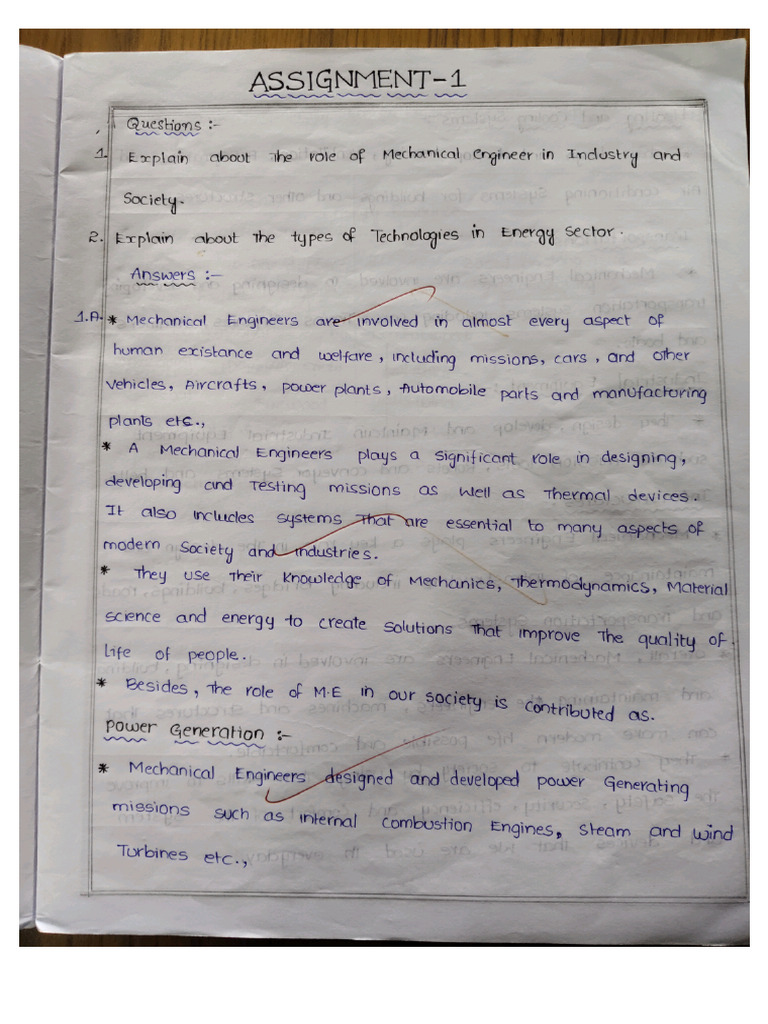 ASSIGNMENT-1
Questions :-
1. Explain about the role of Mechanical engineer in Industry and
Society.
2. Explain about the types of Technologies in Energy Sector.
Answers :-
1.A. * Mechanical Engineers are involved in almost every aspect of
human existance and welfare, including missions, cars, and other
vehicles, Aircrafts, power plants, Automobile parts and manufactoring
plants etc.,
* A Mechanical Engineers plays a significant role in designing,
developing and Testing missions as well as Thermal devices.
It also includes systems that are essential to many aspects of
modern Society and industries.
* They use their knowledge of Mechanics, Thermodynamics, Material
science and energy to create solutions that improve the quality of
life of people.
* Besides, the role of M.E in our society is contributed as.
Power Generation :-
* Mechanical Engineers designed and developed power Generating
missions such as internal combustion Engines, steam and wind
Turbines etc.,